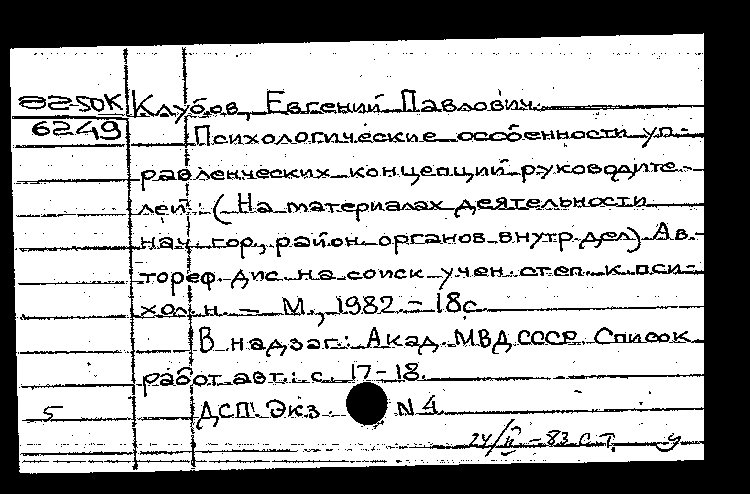 82-50К Клубов, Евгений Павлович.
6249 Психологические особенности уп-
равленческих концепций руководите-
лей: (На материалах деятельности
нач. гор., район. органов внутр. дел) Ав-
тореф. дис. на соиск. учен. степ. к. пси-
хол. н. – М., 1982. – 18с.
В надзаг.: Акад. МВД СССР. Список
работ авт.: с. 17-18.
5 ДСП. Экз. N 4.
24/II-83 с.т. у